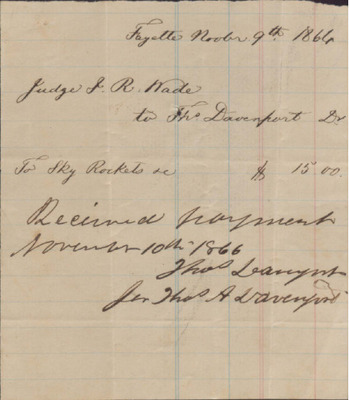 Fayette Novbr 9th 1866
Judge J. R. Wade
to Thos Davenport Dr
To Sky Rockets &c $ 15.00.
Received payment
November 10th 1866
Thos Davenport
per Thos A Davenport